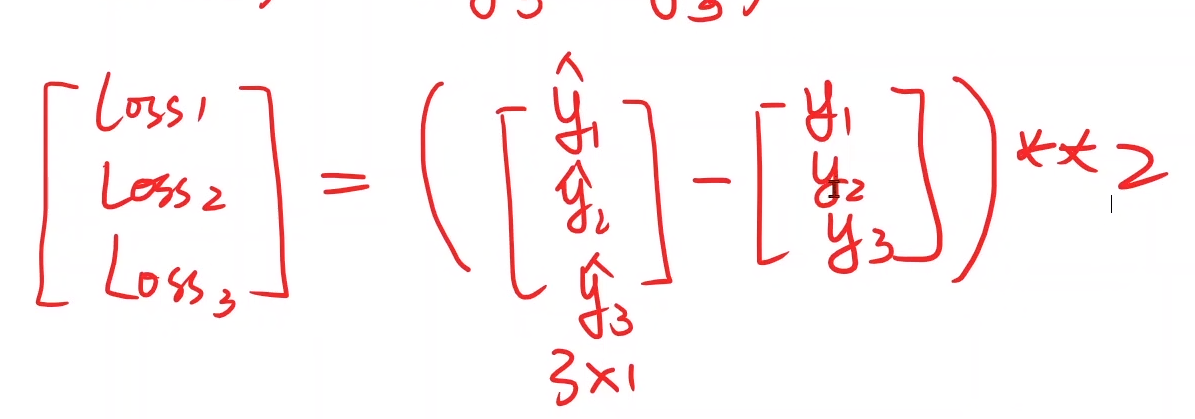 [Loss1 Loss2 Loss3] = ([ŷ1 ŷ2 ŷ3] - [y1 y2 y3]) ** 2
3×1